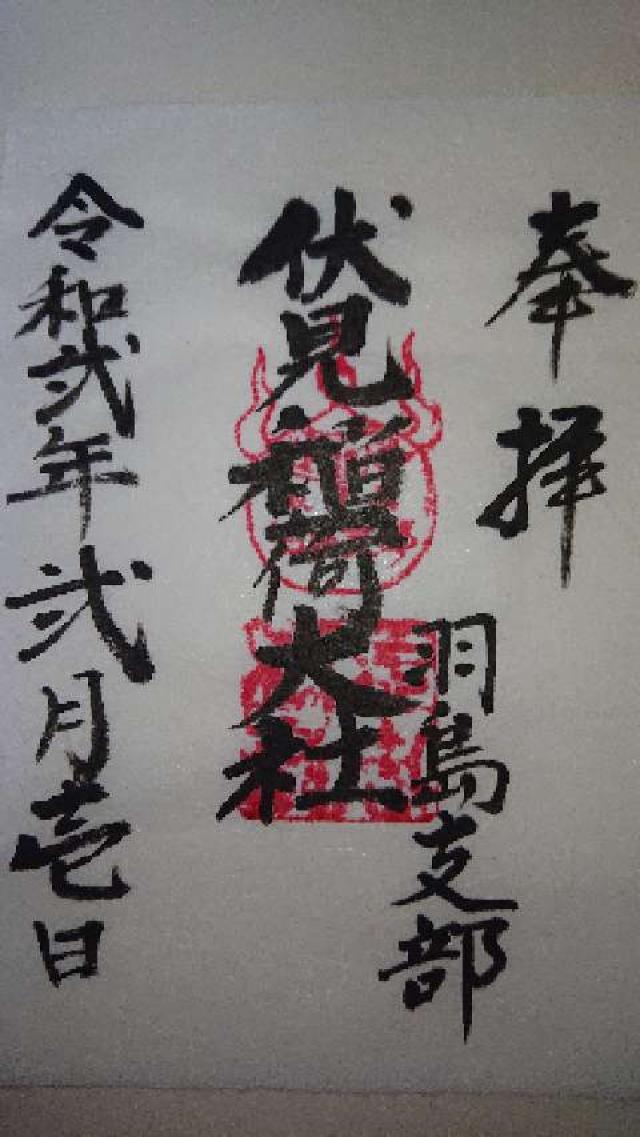 奉拝
伏見稲荷大社
羽島支部
令和弐年弐月壱日